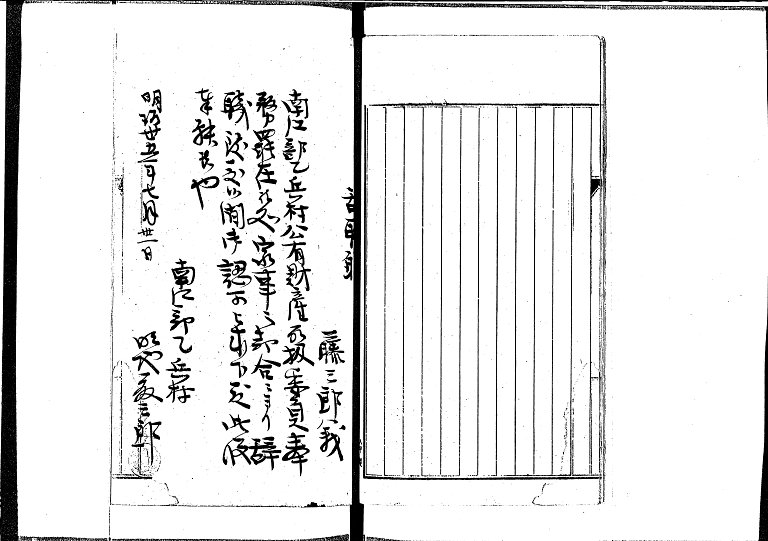 藤三郎義
南江部乙兵村公有財産取扱委員奉
務罷在候処家事之都合ニヨリ辞
職致度候間御認可被成下度此段
奉願候也
明治卅五年七月卅一日
南江部乙兵村
藤三郎